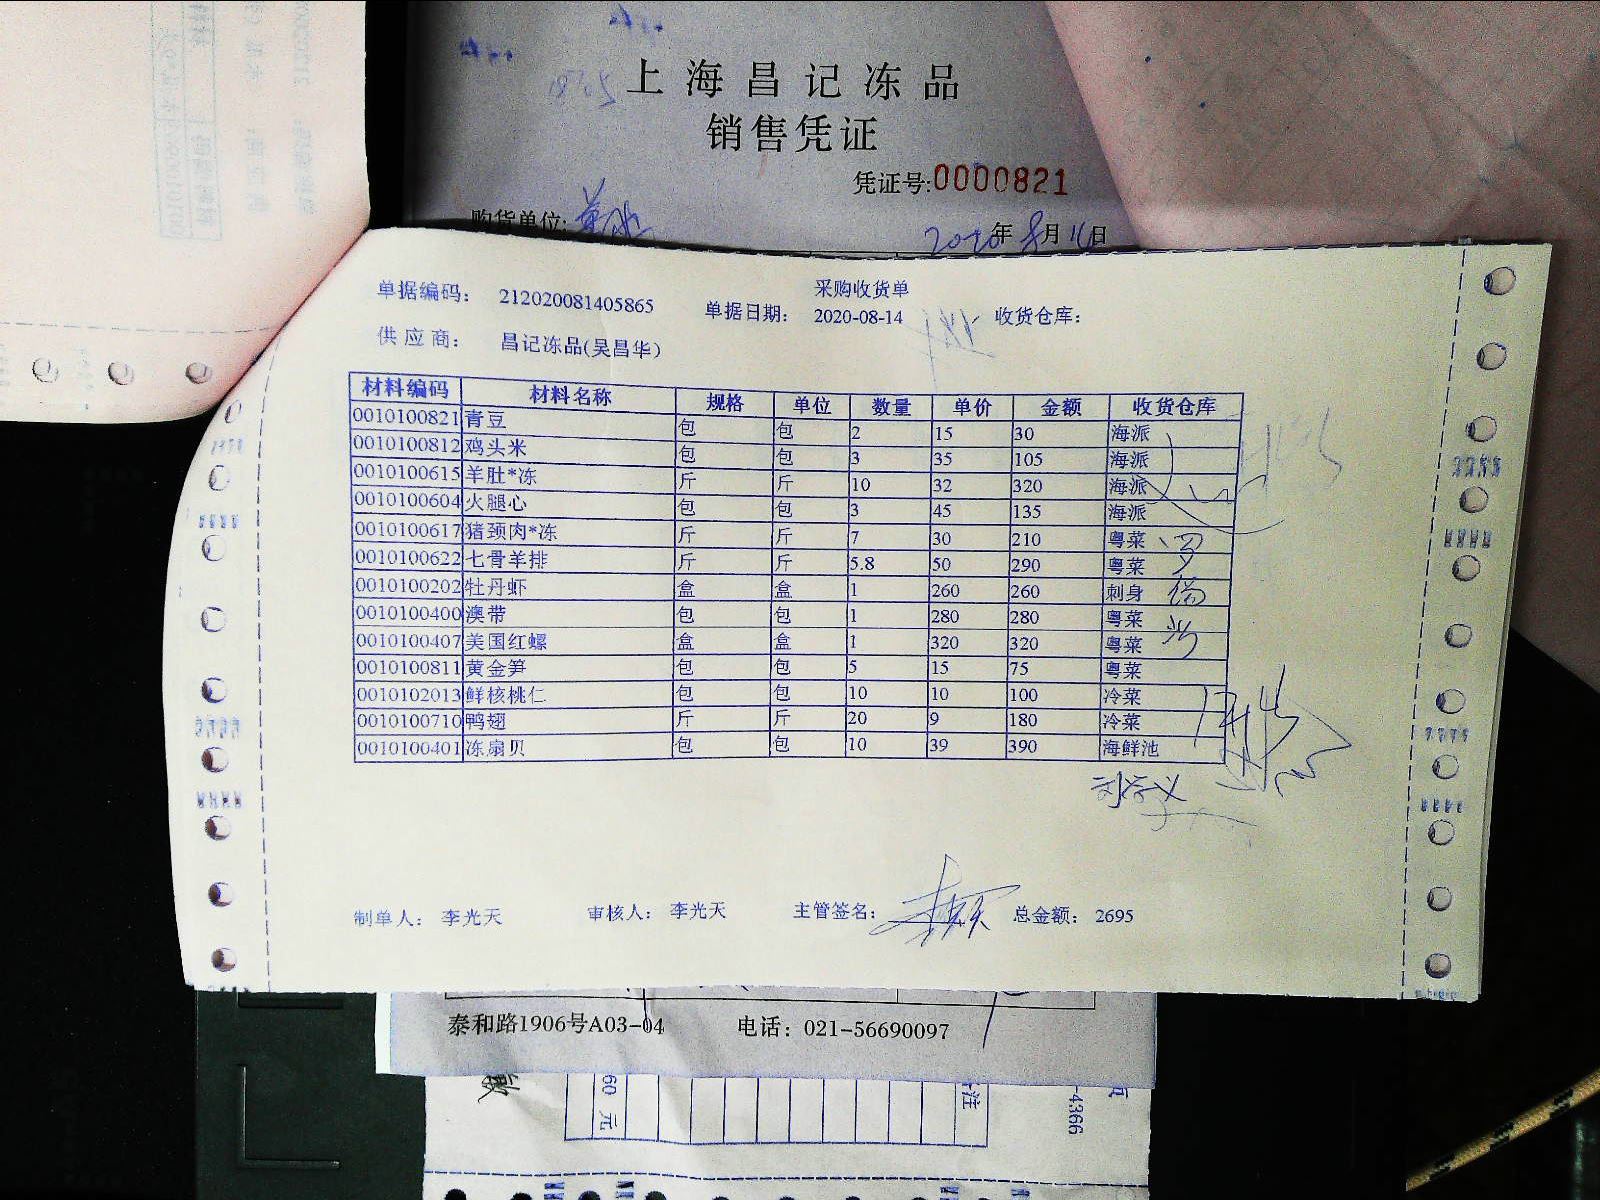 上海昌记冻品
销售凭证
凭证号:0000821
购货单位:
2020年8月16日
采购收货单
单据编码: 212020081405865 单据日期: 2020-08-14 收货仓库:
供应商: 昌记冻品(吴昌华)
材料编码 材料名称 规格 单位 数量 单价 金额 收货仓库
0010100821 青豆 包 包 2 15 30 海派
0010100812 鸡头米 包 包 3 35 105 海派
0010100615 羊肚*冻 斤 斤 10 32 320 海派
0010100604 火腿心 包 包 3 45 135 海派
0010100617 猪颈肉*冻 斤 斤 7 30 210 粤菜
0010100622 七骨羊排 斤 斤 5.8 50 290 粤菜
0010100202 牡丹虾 盒 盒 1 260 260 刺身
0010100400 澳带 包 包 1 280 280 粤菜
0010100407 美国红螺 盒 盒 1 320 320 粤菜
0010100811 黄金笋 包 包 5 15 75 粤菜
0010102013 鲜核桃仁 包 包 10 10 100 冷菜
0010100710 鸭翅 斤 斤 20 9 180 冷菜
0010100401 冻扇贝 包 包 10 39 390 海鲜池
刘学义
制单人: 李光天 审核人: 李光天 主管签名: 总金额: 2695
泰和路1906号A03-04 电话: 021-56690097
60 元
注
-4366